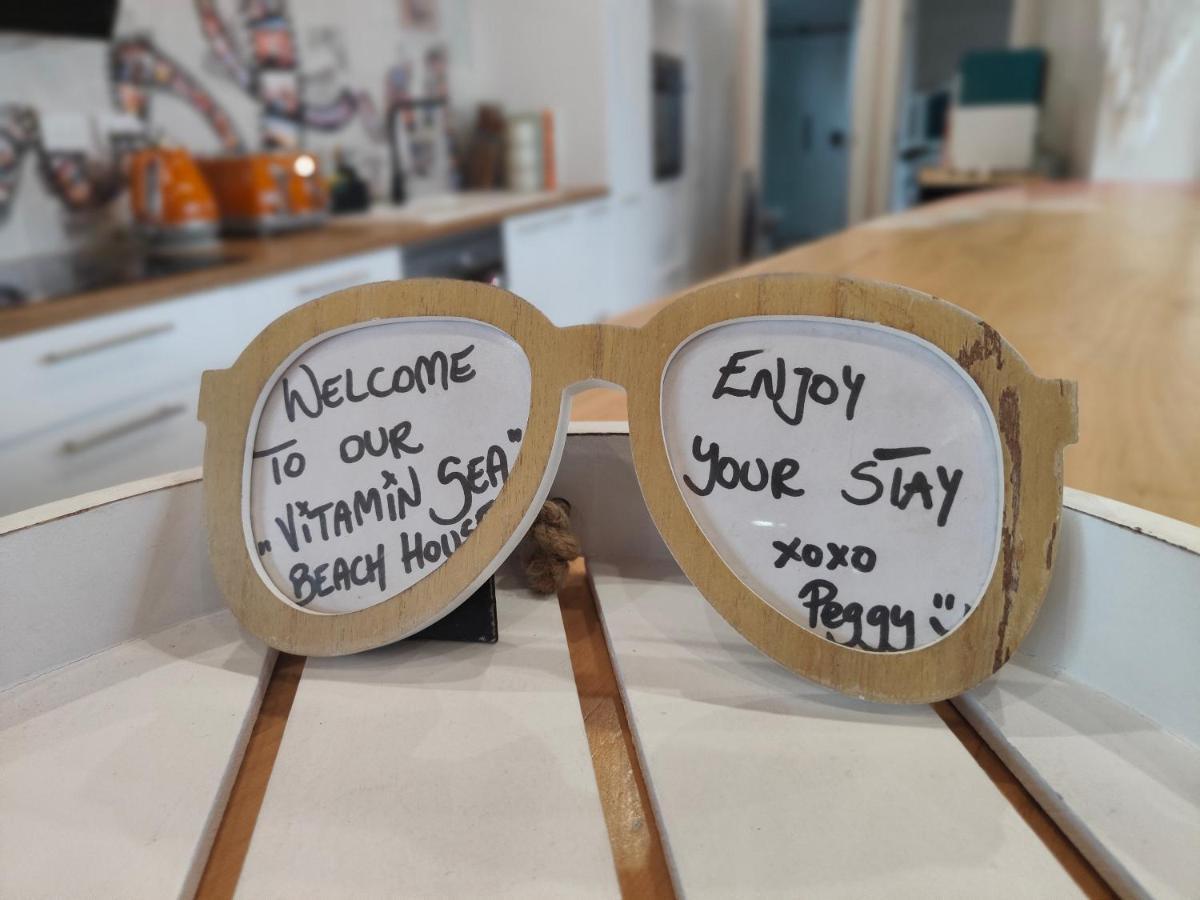 WELCOME
TO OUR
„VITAMIN SEA"
BEACH HOUSE
ENJOY
YOUR STAY
xoxo
Peggy :)